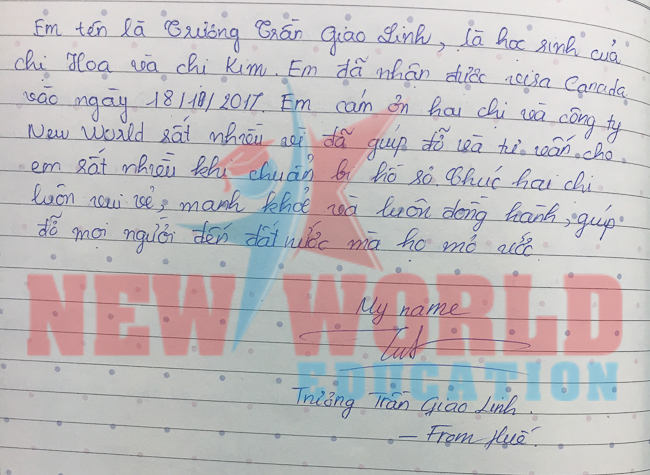 Em tên là Trương Trần Giao Linh, là học sinh của
chị Hoa và chị Kim. Em đã nhận được visa Canada
vào ngày 18/10/2017. Em cám ơn hai chị và công ty
New World rất nhiều vì đã giúp đỡ và tư vấn cho
em rất nhiều khi chuẩn bị hồ sơ. Chúc hai chị
luôn vui vẻ, mạnh khoẻ và luôn đồng hành, giúp
đỡ mọi người đến đất nước mà họ mơ ước.
My name
Trương Trần Giao Linh.
– From Huế.
NEW WORLD
EDUCATION